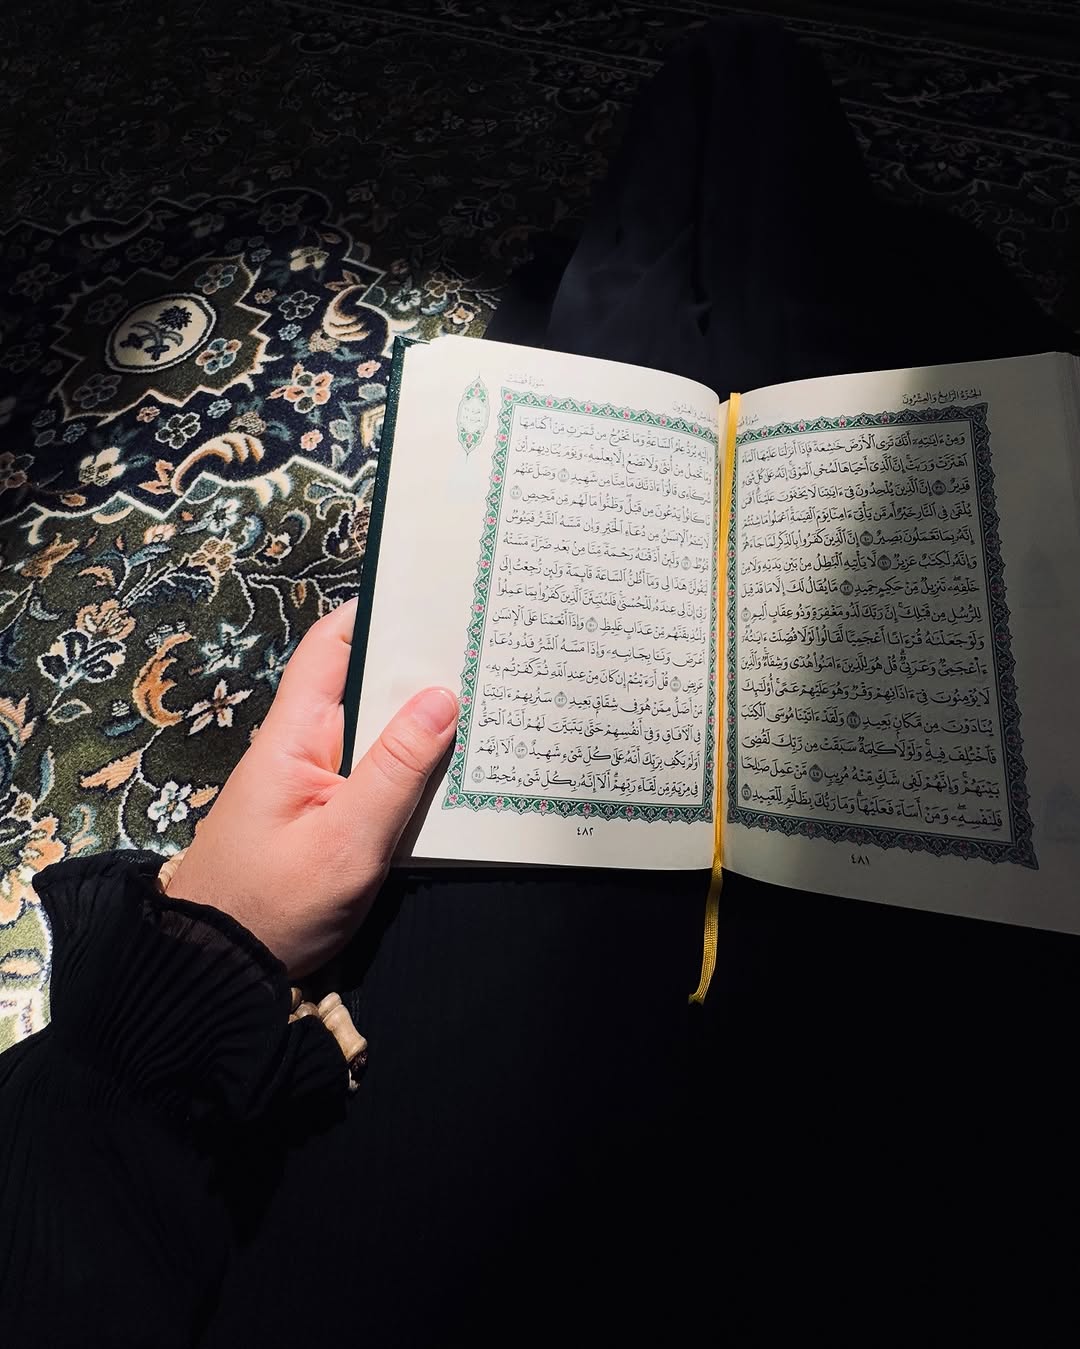 الجزء الرابع والعشرون
وَمِنْ ءَايَٰتِهِۦٓ أَنَّكَ تَرَى ٱلْأَرْضَ خَٰشِعَةً فَإِذَآ أَنزَلْنَا عَلَيْهَا ٱلْمَآءَ
ٱهْتَزَّتْ وَرَبَتْ ۚ إِنَّ ٱلَّذِىٓ أَحْيَاهَا لَمُحْىِ ٱلْمَوْتَىٰٓ ۚ إِنَّهُۥ عَلَىٰ كُلِّ شَىْءٍ
قَدِيرٌ ٣٩ إِنَّ ٱلَّذِينَ يُلْحِدُونَ فِىٓ ءَايَٰتِنَا لَا يَخْفَوْنَ عَلَيْنَآ ۗ أَفَمَن
يُلْقَىٰ فِى ٱلنَّارِ خَيْرٌ أَم مَّن يَأْتِىٓ ءَامِنًا يَوْمَ ٱلْقِيَٰمَةِ ۚ ٱعْمَلُوا۟ مَا شِئْتُمْ
إِنَّهُۥ بِمَا تَعْمَلُونَ بَصِيرٌ ٤٠ إِنَّ ٱلَّذِينَ كَفَرُوا۟ بِٱلذِّكْرِ لَمَّا جَآءَهُمْ
وَإِنَّهُۥ لَكِتَٰبٌ عَزِيزٌ ٤١ لَّا يَأْتِيهِ ٱلْبَٰطِلُ مِنۢ بَيْنِ يَدَيْهِ وَلَا مِنْ
خَلْفِهِۦ ۖ تَنزِيلٌ مِّنْ حَكِيمٍ حَمِيدٍ ٤٢ مَّا يُقَالُ لَكَ إِلَّا مَا قَدْ قِيلَ
لِلرُّسُلِ مِن قَبْلِكَ ۚ إِنَّ رَبَّكَ لَذُو مَغْفِرَةٍ وَذُو عِقَابٍ أَلِيمٍ ٤٣
وَلَوْ جَعَلْنَٰهُ قُرْءَانًا أَعْجَمِيًّا لَّقَالُوا۟ لَوْلَا فُصِّلَتْ ءَايَٰتُهُۥٓ ۖ
ءَا۬عْجَمِىٌّ وَعَرَبِىٌّ ۗ قُلْ هُوَ لِلَّذِينَ ءَامَنُوا۟ هُدًى وَشِفَآءٌ ۖ وَٱلَّذِينَ
لَا يُؤْمِنُونَ فِىٓ ءَاذَانِهِمْ وَقْرٌ وَهُوَ عَلَيْهِمْ عَمًى ۚ أُو۟لَٰٓئِكَ
يُنَادَوْنَ مِن مَّكَانٍۭ بَعِيدٍ ٤٤ وَلَقَدْ ءَاتَيْنَا مُوسَى ٱلْكِتَٰبَ
فَٱخْتُلِفَ فِيهِ ۗ وَلَوْلَا كَلِمَةٌ سَبَقَتْ مِن رَّبِّكَ لَقُضِىَ
بَيْنَهُمْ ۚ وَإِنَّهُمْ لَفِى شَكٍّ مِّنْهُ مُرِيبٍ ٤٥ مَّنْ عَمِلَ صَٰلِحًا
فَلِنَفْسِهِۦ ۖ وَمَنْ أَسَآءَ فَعَلَيْهَا ۗ وَمَا رَبُّكَ بِظَلَّٰمٍ لِّلْعَبِيدِ ٤٦
٤٨١
سورة فصلت
إِلَيْهِ يُرَدُّ عِلْمُ ٱلسَّاعَةِ ۚ وَمَا تَخْرُجُ مِن ثَمَرَٰتٍ مِّنْ أَكْمَامِهَا
وَمَا تَحْمِلُ مِنْ أُنثَىٰ وَلَا تَضَعُ إِلَّا بِعِلْمِهِۦ ۚ وَيَوْمَ يُنَادِيهِمْ أَيْنَ
شُرَكَآءِى قَالُوٓا۟ ءَاذَنَّٰكَ مَا مِنَّا مِن شَهِيدٍ ٤٧ وَضَلَّ عَنْهُم
مَّا كَانُوا۟ يَدْعُونَ مِن قَبْلُ ۖ وَظَنُّوا۟ مَا لَهُم مِّن مَّحِيصٍ ٤٨
لَّا يَسْـَٔمُ ٱلْإِنسَٰنُ مِن دُعَآءِ ٱلْخَيْرِ وَإِن مَّسَّهُ ٱلشَّرُّ فَيَـُٔوسٌ
قَنُوطٌ ٤٩ وَلَئِنْ أَذَقْنَٰهُ رَحْمَةً مِّنَّا مِنۢ بَعْدِ ضَرَّآءَ مَسَّتْهُ
لَيَقُولَنَّ هَٰذَا لِى وَمَآ أَظُنُّ ٱلسَّاعَةَ قَآئِمَةً وَلَئِن رُّجِعْتُ إِلَىٰ
رَبِّىٓ إِنَّ لِى عِندَهُۥ لَلْحُسْنَىٰ ۚ فَلَنُنَبِّئَنَّ ٱلَّذِينَ كَفَرُوا۟ بِمَا عَمِلُوا۟
وَلَنُذِيقَنَّهُم مِّنْ عَذَابٍ غَلِيظٍ ٥٠ وَإِذَآ أَنْعَمْنَا عَلَى ٱلْإِنسَٰنِ
أَعْرَضَ وَنَـَٔا بِجَانِبِهِۦ وَإِذَا مَسَّهُ ٱلشَّرُّ فَذُو دُعَآءٍ
عَرِيضٍ ٥١ قُلْ أَرَءَيْتُمْ إِن كَانَ مِنْ عِندِ ٱللَّهِ ثُمَّ كَفَرْتُم بِهِۦ
مَنْ أَضَلُّ مِمَّنْ هُوَ فِى شِقَاقٍۭ بَعِيدٍ ٥٢ سَنُرِيهِمْ ءَايَٰتِنَا
فِى ٱلْءَافَاقِ وَفِىٓ أَنفُسِهِمْ حَتَّىٰ يَتَبَيَّنَ لَهُمْ أَنَّهُ ٱلْحَقُّ ۗ
أَوَلَمْ يَكْفِ بِرَبِّكَ أَنَّهُۥ عَلَىٰ كُلِّ شَىْءٍ شَهِيدٌ ٥٣ أَلَآ إِنَّهُمْ
فِى مِرْيَةٍ مِّن لِّقَآءِ رَبِّهِمْ ۗ أَلَآ إِنَّهُۥ بِكُلِّ شَىْءٍ مُّحِيطٌۢ ٥٤
٤٨٢